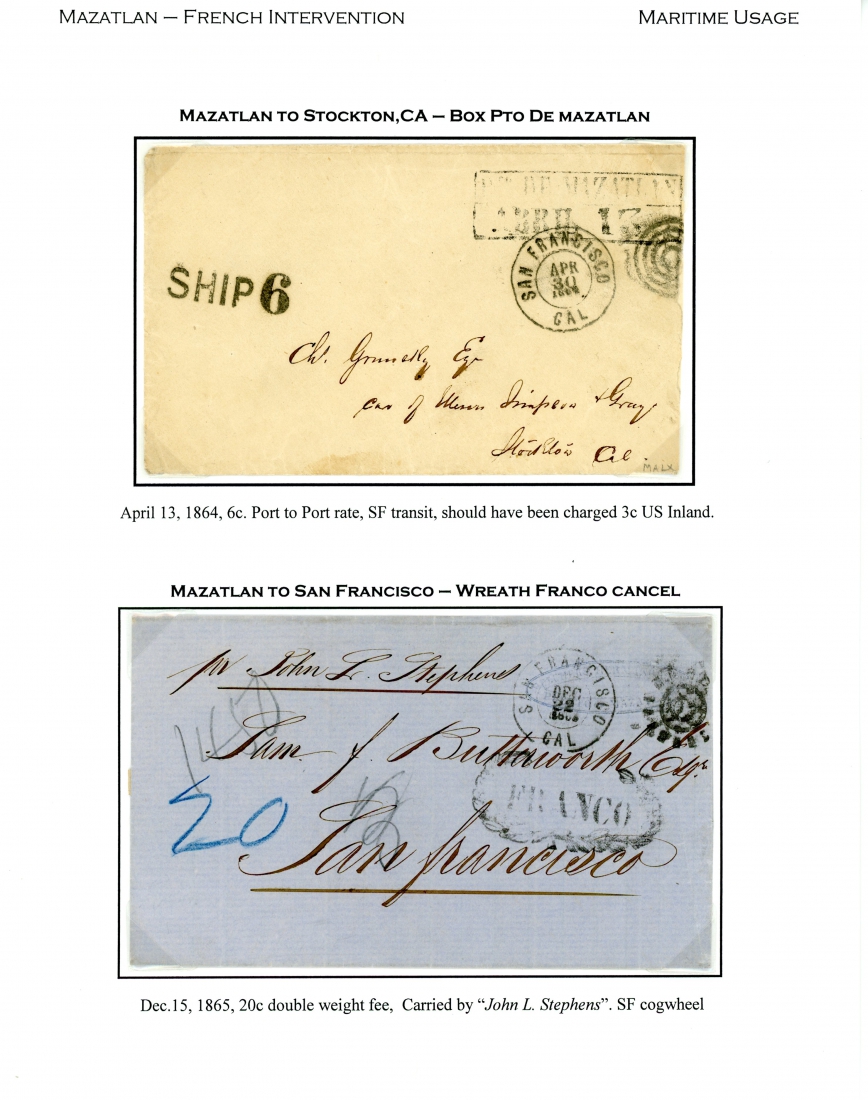 MAZATLAN – FRENCH INTERVENTION
MARITIME USAGE
MAZATLAN TO STOCKTON,CA – BOX PTO DE MAZATLAN
DE MAZATLAN
SHIP 6
SAN FRANCISCO
APR
30
CAL
Esqr
Simpson & Gray
Stockton Cal.
MALX
April 13, 1864, 6c. Port to Port rate, SF transit, should have been charged 3c US Inland.
MAZATLAN TO SAN FRANCISCO – WREATH FRANCO CANCEL
pr John L. Stephens
SAN FRANCISCO
DEC
22
CAL
Sam. f. Butterworth Esqr.
20
FRANCO
San francisco
Dec.15, 1865, 20c double weight fee, Carried by “John L. Stephens”. SF cogwheel